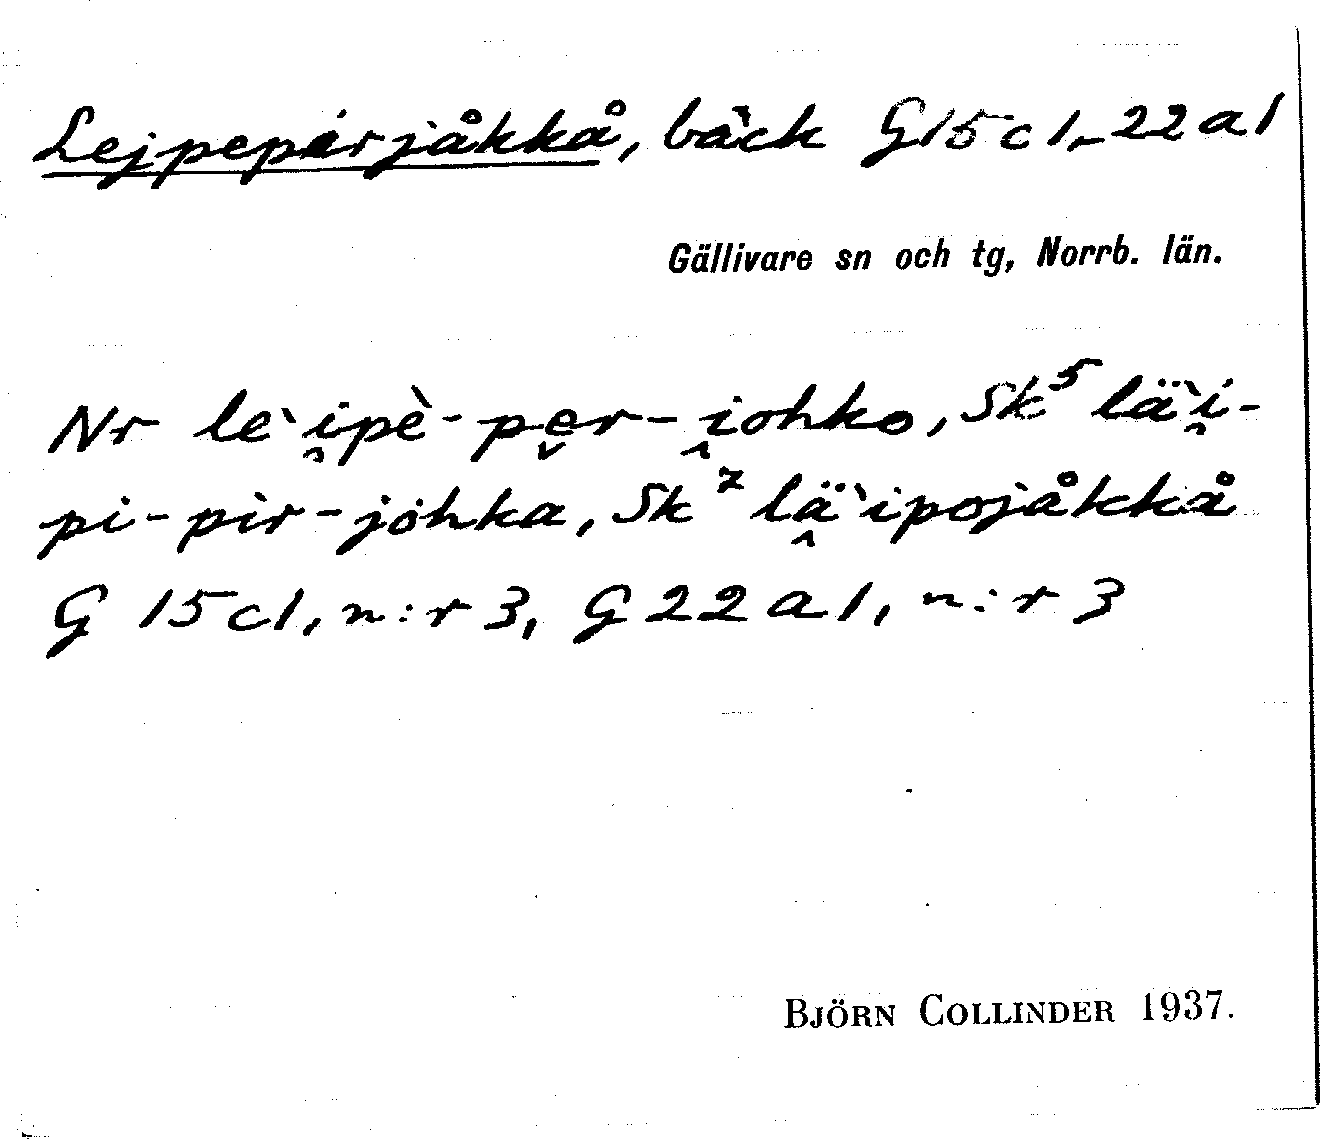 Lejpepirjåkkå, bäck G15c1, 22a1
Gällivare sn och tg, Norrb. län.
Nr le`i̯pè-pe̬r-i̯ohko, Sk⁵ lä`i̯-
pi-pìr-johka, Sk⁷ lä̭`ipojåkkå
G 15c1, n:r 3, G 22a1, n:r 3
BJÖRN COLLINDER 1937.